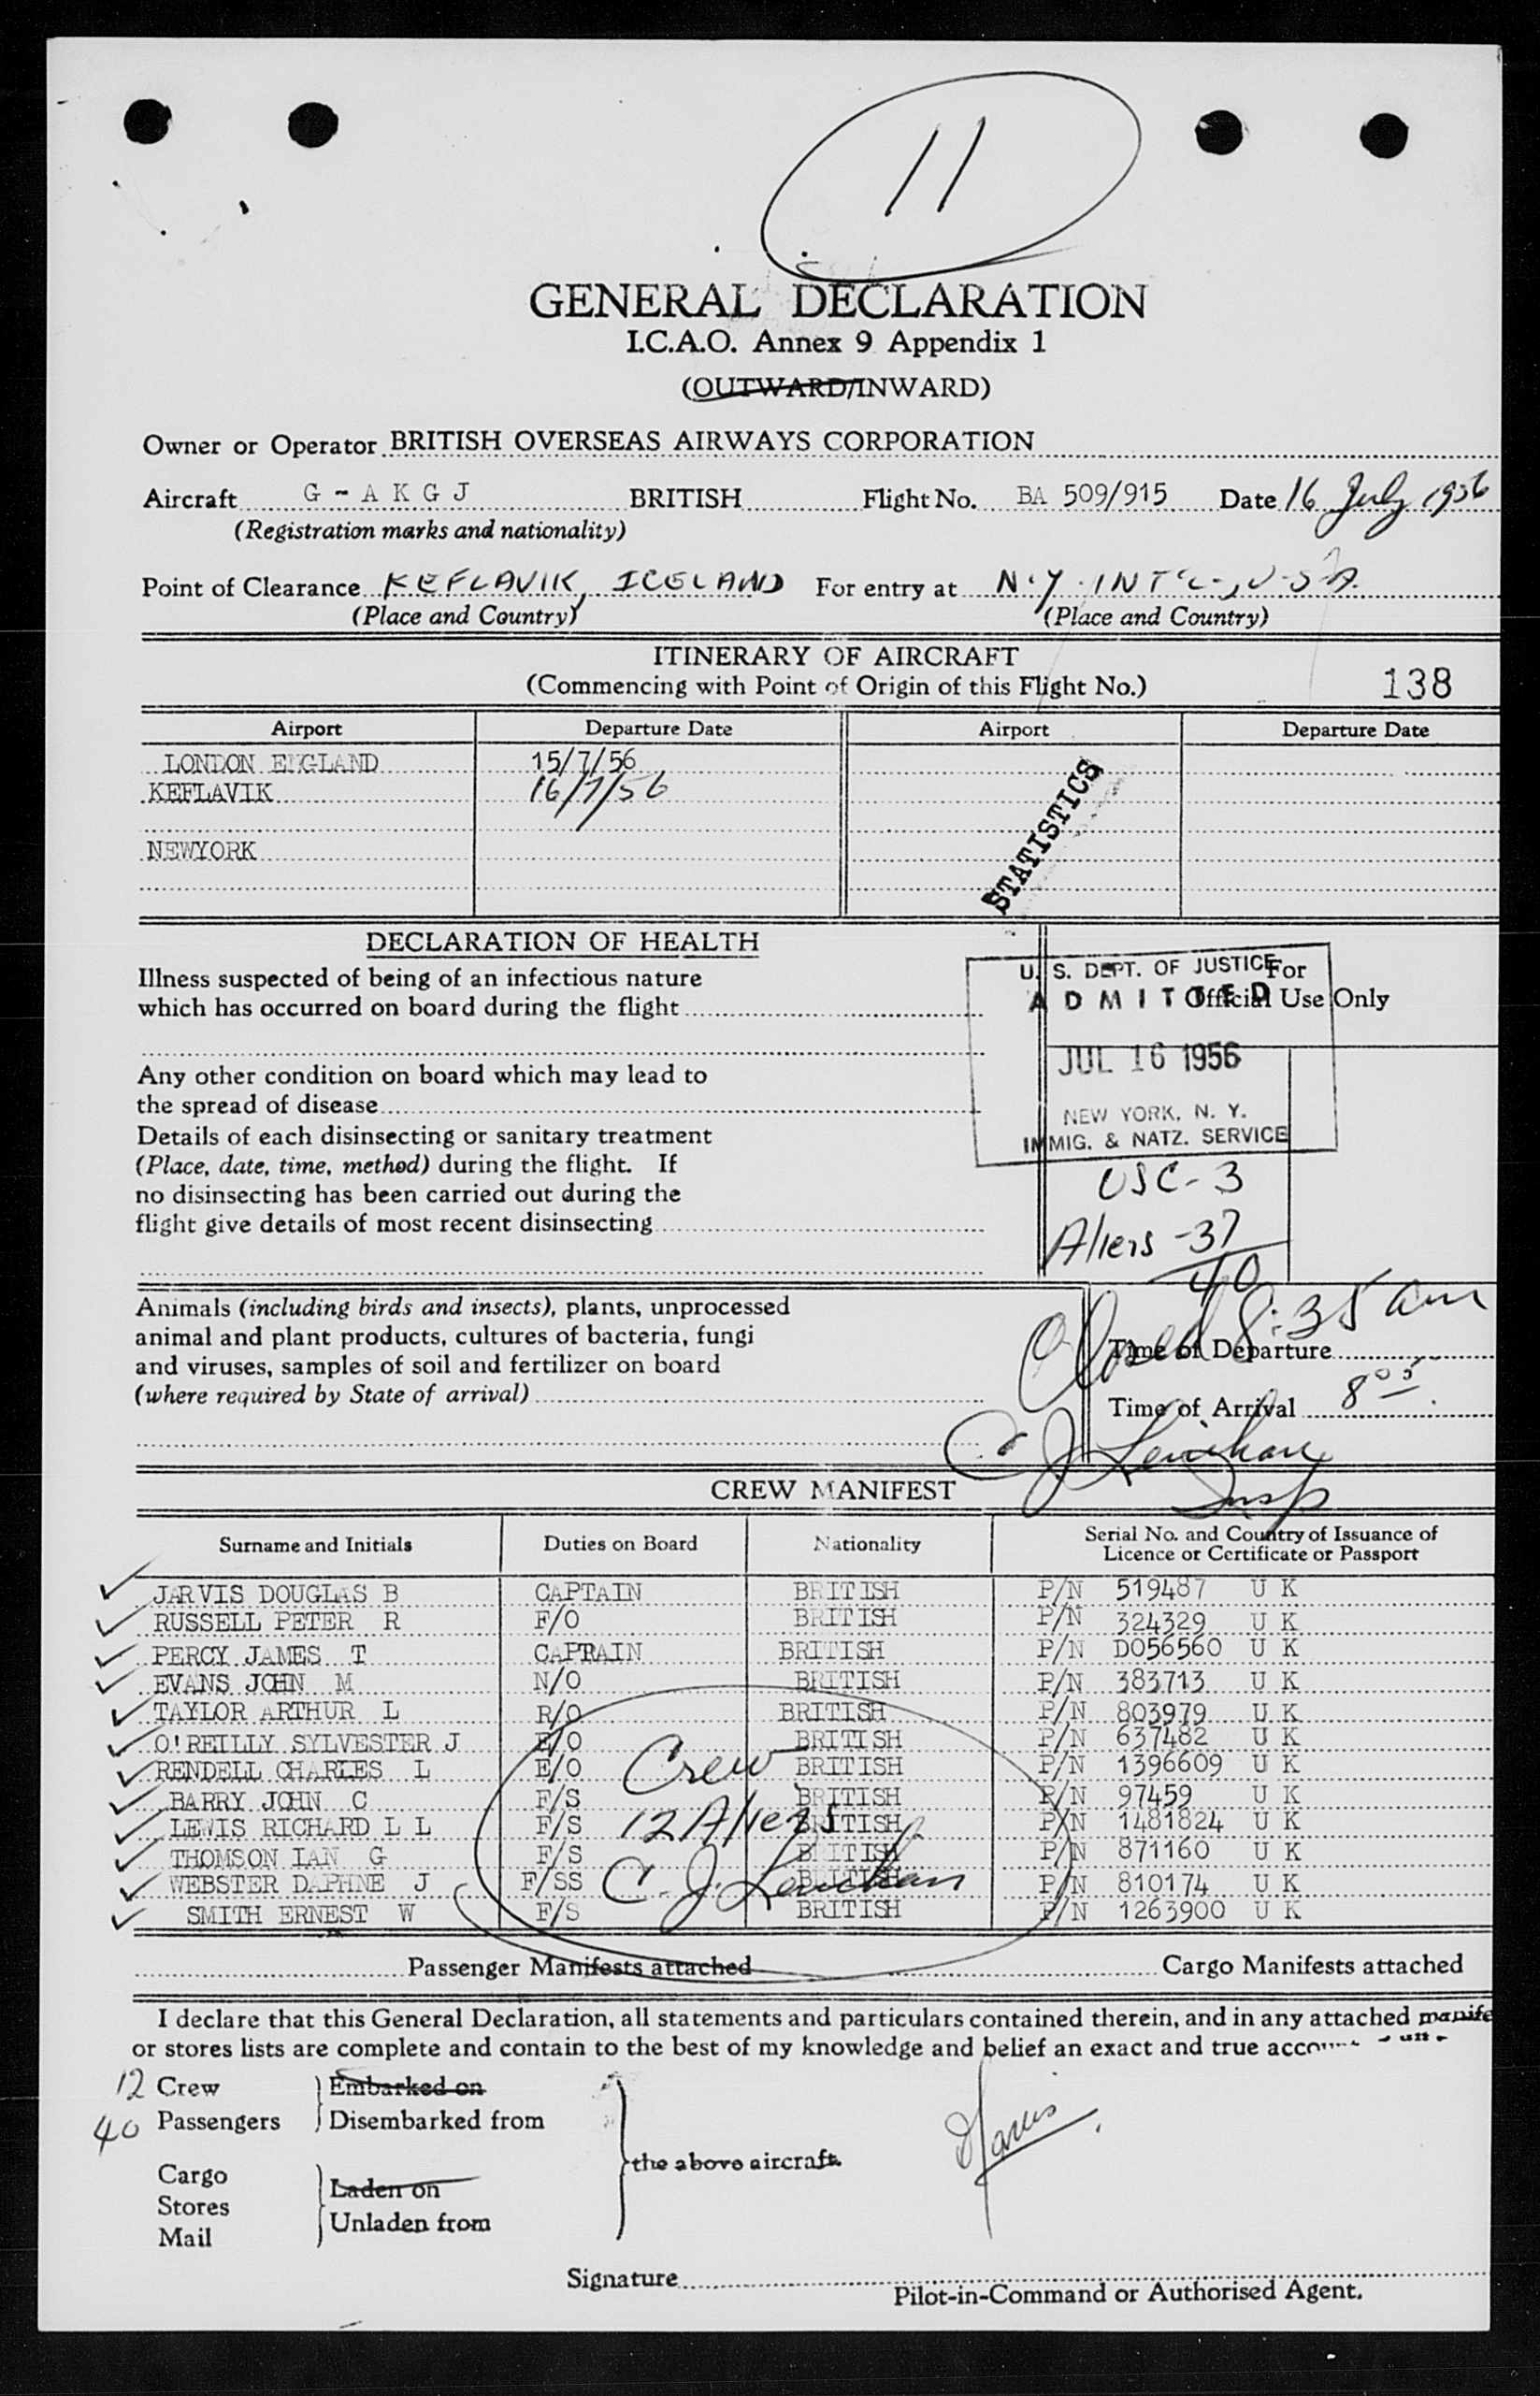 11
GENERAL DECLARATION
I.C.A.O. Annex 9 Appendix 1
(OUTWARD/INWARD)
Owner or Operator BRITISH OVERSEAS AIRWAYS CORPORATION
Aircraft G - A K G J BRITISH Flight No. BA 509/915 Date 16 July 1956
(Registration marks and nationality)
Point of Clearance KEFLAVIK, ICELAND For entry at N.Y. INT'L, U.S.A.
(Place and Country) (Place and Country)
ITINERARY OF AIRCRAFT
(Commencing with Point of Origin of this Flight No.) 138
Airport Departure Date Airport Departure Date
LONDON ENGLAND 15/7/56
KEFLAVIK 16/7/56
NEWYORK
STATISTICS
DECLARATION OF HEALTH
Illness suspected of being of an infectious nature
which has occurred on board during the flight
Any other condition on board which may lead to
the spread of disease
Details of each disinsecting or sanitary treatment
(Place, date, time, method) during the flight. If
no disinsecting has been carried out during the
flight give details of most recent disinsecting
For
Official Use Only
U. S. DEPT. OF JUSTICE
ADMITTED
JUL 16 1956
NEW YORK, N. Y.
IMMIG. & NATZ. SERVICE
USC - 3
Aliens - 37
40
Animals (including birds and insects), plants, unprocessed
animal and plant products, cultures of bacteria, fungi
and viruses, samples of soil and fertilizer on board
(where required by State of arrival)
Closed 8:35 am
Time of Departure
Time of Arrival 8 05
C J Lenihan
Insp
CREW MANIFEST
Surname and Initials Duties on Board Nationality Serial No. and Country of Issuance of
Licence or Certificate or Passport
JARVIS DOUGLAS B CAPTAIN BRITISH P/N 519487 U K
RUSSELL PETER R F/O BRITISH P/N 324329 U K
PERCY JAMES T CAPRAIN BRITISH P/N D056560 U K
EVANS JOHN M N/O BRITISH P/N 383713 U K
TAYLOR ARTHUR L R/O BRITISH P/N 803979 U K
O'REILLY SYLVESTER J E/O BRITISH P/N 637482 U K
RENDELL CHARLES L E/O BRITISH P/N 1396609 U K
BARRY JOHN C F/S BRITISH P/N 97459 U K
LEWIS RICHARD L L F/S BRITISH P/N 1481824 U K
THOMSON IAN G F/S BRITISH P/N 871160 U K
WEBSTER DAPHNE J F/SS BRITISH P/N 810174 U K
SMITH ERNEST W F/S BRITISH P/N 1263900 U K
Crew
12 Aliens
C. J. Lenihan
Passenger Manifests attached Cargo Manifests attached
I declare that this General Declaration, all statements and particulars contained therein, and in any attached manife
or stores lists are complete and contain to the best of my knowledge and belief an exact and true
12 Crew Embarked on
40 Passengers Disembarked from
the above aircraft.
Cargo
Stores
Mail
Laden on
Unladen from
Jarvis
Signature
Pilot-in-Command or Authorised Agent.